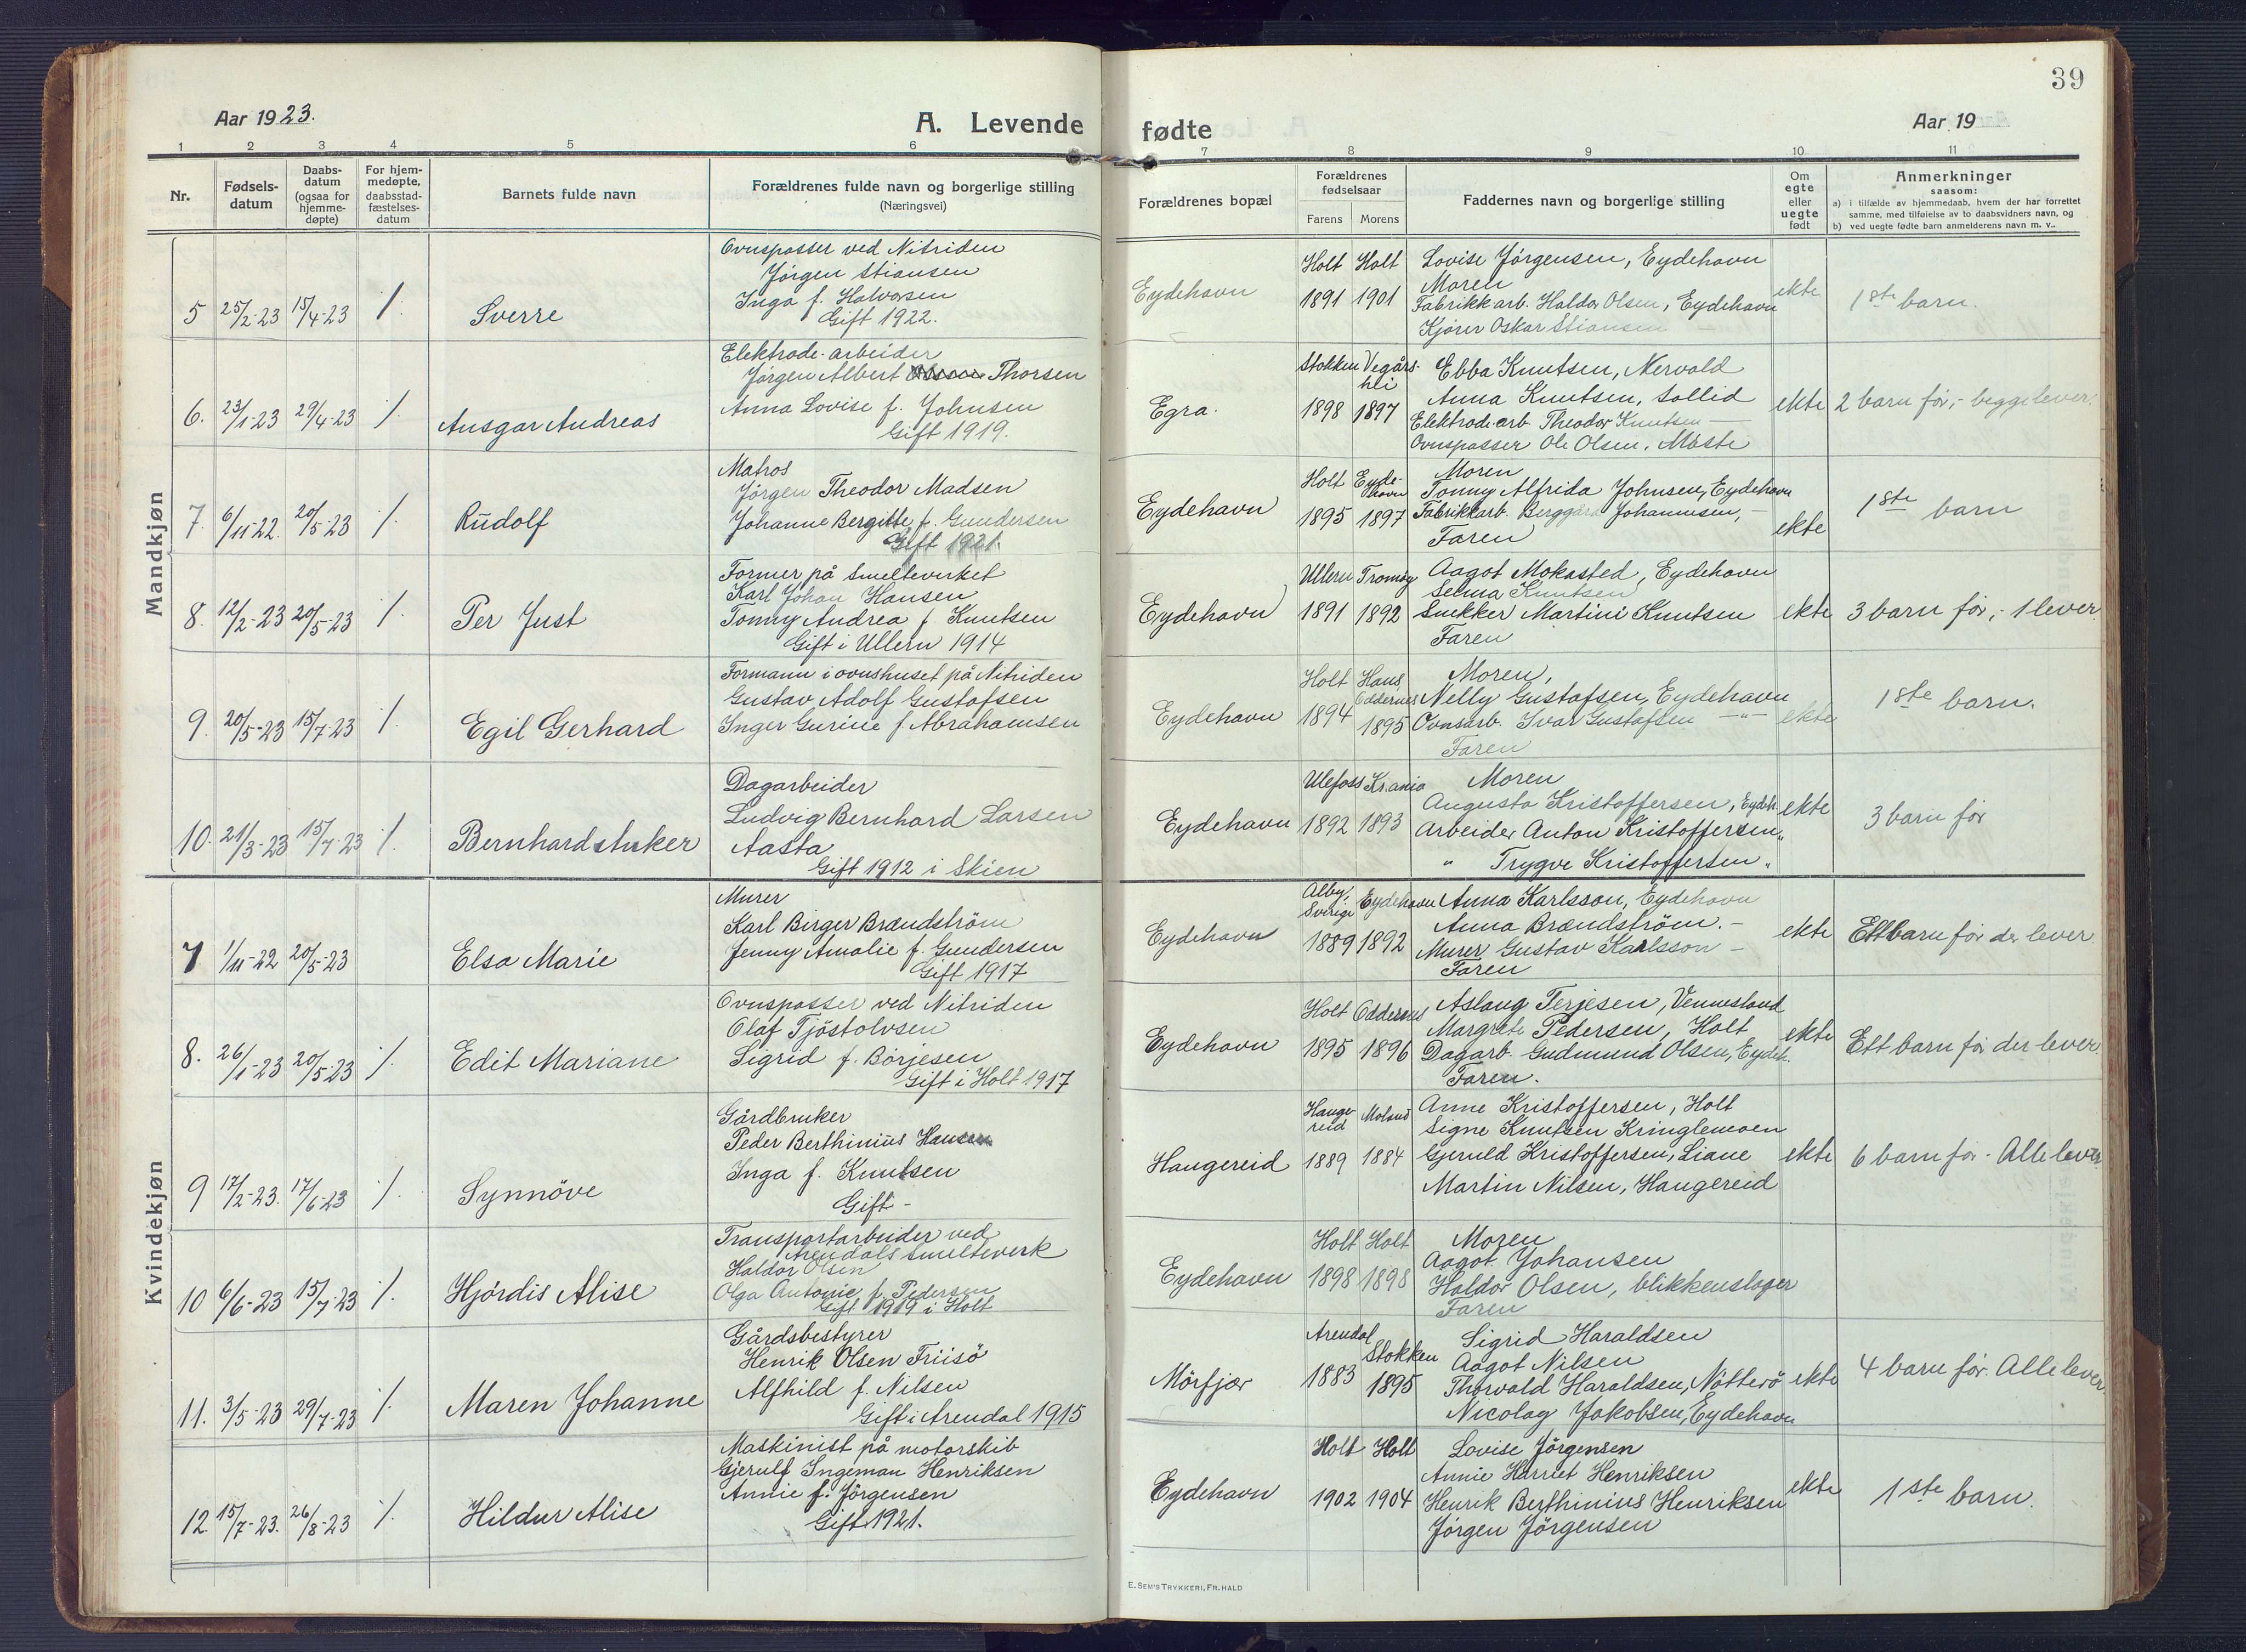 39
Aar 1923.
A. Levende
fødte
Aar 19
1 2 3 4 5 6 7 8 9 10 11
Nr.
Fødsels-
datum
Daabs-
datum
(ogsaa for
hjemme-
døpte)
For hjem-
medøpte,
daabsstad-
fæstelses-
datum
Barnets fulde navn
Forældrenes fulde navn og borgerlige stilling
(Næringsvei)
Forældrenes bopæl
Forældrenes
fødselsaar
Farens Morens
Faddernes navn og borgerlige stilling
Om
egte
eller
uegte
født
Anmerkninger
saasom:
a) i tilfælde av hjemmedaab, hvem der har forrettet
samme, med tilføielse av to daabsvidners navn, og
b) ved uegte fødte barn anmelderens navn m. v..
Mandkjøn
5 25/2-23 15/4-23 /.
Sverre
Ovnspasser ved Nitriden
Jörgen Stiansen
Inga f. Halvorsen
Gift 1922.
Eydehavn
Holt Holt
1891 1901
Lovise Jörgensen, Eydehavn
Moren
Fabrikkarb. Haldor Olsen, Eydehavn
Kjörer Oskar Stiansen —
ekte
1ste barn.
6. 23/1-23 29/4-23 /.
Ansgar Andreas
Elektrode-arbeider
Jörgen Albert Thorsen
Anna Lovise f. Johnsen
Gift 1919.
Egra.
Stokken Vegårs-
hei
1898 1897
Ebba Knutsen, Nervold
Anna Knutsen, Sollid
Elektrode-arb. Theodor Knutsen —
Ovnspasser Ole Olsen, Måste
ekte
2 barn för, - begge lever.
7. 6/11-22. 20/5-23 /.
Rudolf
Matros
Jörgen Theodor Madsen
Johanne Bergitte f. Gundersen
Gift 1921.
Eydehavn
Holt Eyde-
havn
1895 1897
Moren
Tonny Alfrida Johnsen, Eydehavn
Fabrikkarb. Berggård Johannesen, —
Faren
ekte
1ste barn
8. 12/2-23 20/5-23 /.
Per Just
Former på Smelteverket
Karl Johan Hansen
Tonny Andrea f Knutsen
Gift i Ullern 1914
Eydehavn
Ullern Tromöy
1891 1892
Aagot Mokasted, Eydehavn
Selma Knutsen
Snekker Martini Knutsen
Faren
ekte
3 barn för, - 1 lever.
9. 20/5-23 15/7-23 /.
Egil Gerhard
Formann i ovnshuset på Nitriden
Gustav Adolf Gustafsen
Inger Gurine f. Abrahamsen
Eydehavn
Holt Hans
Oddernes
1894 1895
Moren,
Nelly Gustafsen, Eydehavn
Ovnsarb. Ivar Gustafsen —"—
Faren
ekte
1ste barn.
10. 21/3-23 15/7-23 /.
Bernhard
Dagarbeider
Ludvig Bernhard Larsen
Aasta
Gift 1912 i Skien
Eydehavn
Ulefoss Kr.ania
1892 1893
Moren
Augusta Kristoffersen, Eydeh.
Arbeider Anton Kristoffersen "
" Trygve Kristoffersen "
ekte
3 barn för
Kvindekjøn
7 1/11-22 20/5-23
Elsa Marie
Murer
Karl Birger Brandström
Jenny Amalie f. Gundersen
Gift 1917
Eydehavn
Alby,
Sverige Eydehavn
1889 1892
Anna Karlsson, Eydehavn
Anna Brændström. -
Murer Gustav Karlsson -
Faren
ekte
Ett barn för der lever
8. 26/1-23 20/5-23 /.
Edit Mariane
Ovnspasser ved Nitriden
Olaf Tjöstolvsen
Sigrid f. Börjesen
Gift i Holt 1917
Eydehavn
Holt Oddernes
1895 1896
Aslaug Terjesen, Vennesland
Margrete Pedersen, Holt
Dagarb. Gudmund Olsen, Eydeh.
Faren.
ekte
Ett barn för der lever.
9 17/2-23. 17/6-23 /.
Synnöve
Gårdbruker
Peder Berthinius Hansen
Inga f. Knutsen
Gift -
Haugereid
Hauge-
reid Moland
1889 1884
Anne Kristoffersen, Holt
Signe Knutsen Kringlemoen
Gjeruld Kristoffersen, Liane
Martin Nilsen, Haugereid
ekte
6 barn för - Alle lever
10 6/6-23 15/7-23 /.
Hjördis Alise
Transportarbeider ved
Arendals smelteverk
Haldor Olsen
Olga Antonie f. Pedersen
Gift 1919 i Holt
Eydehavn
Holt Holt
1898 1898
Moren
Aagot Johansen
Haldor Olsen, blikkenslager
Faren
11. 3/5-23 29/7-23 /.
Maren Johanne
Gårdsbestyrer
Henrik Olsen Friisö
Alfhild f. Nilsen
Gift i Arendal 1915
Mörfjær
Arendal
Stokken
1883 1895
Sigrid Haraldsen
Aagot Nilsen
Thorvald Haraldsen, Nötterö
Nicolay Jakobsen, Eydehavn
ekte
4 barn för. Alle lever
12. 15/7-23. 26/8-23 /.
Hildur Alise
Maskinist på motorskib
Gjerulf Ingeman Henriksen
Annie f. Jörgensen
Gift 1921.
Eydehavn
Holt Holt
1902 1904
Lovise Jörgensen
Annie Harriet Henriksen
Henrik Berthinius Henriksen
Jörgen Jörgensen
ekte
1ste barn.
E. SEM'S TRYKKERI, FR. HALD